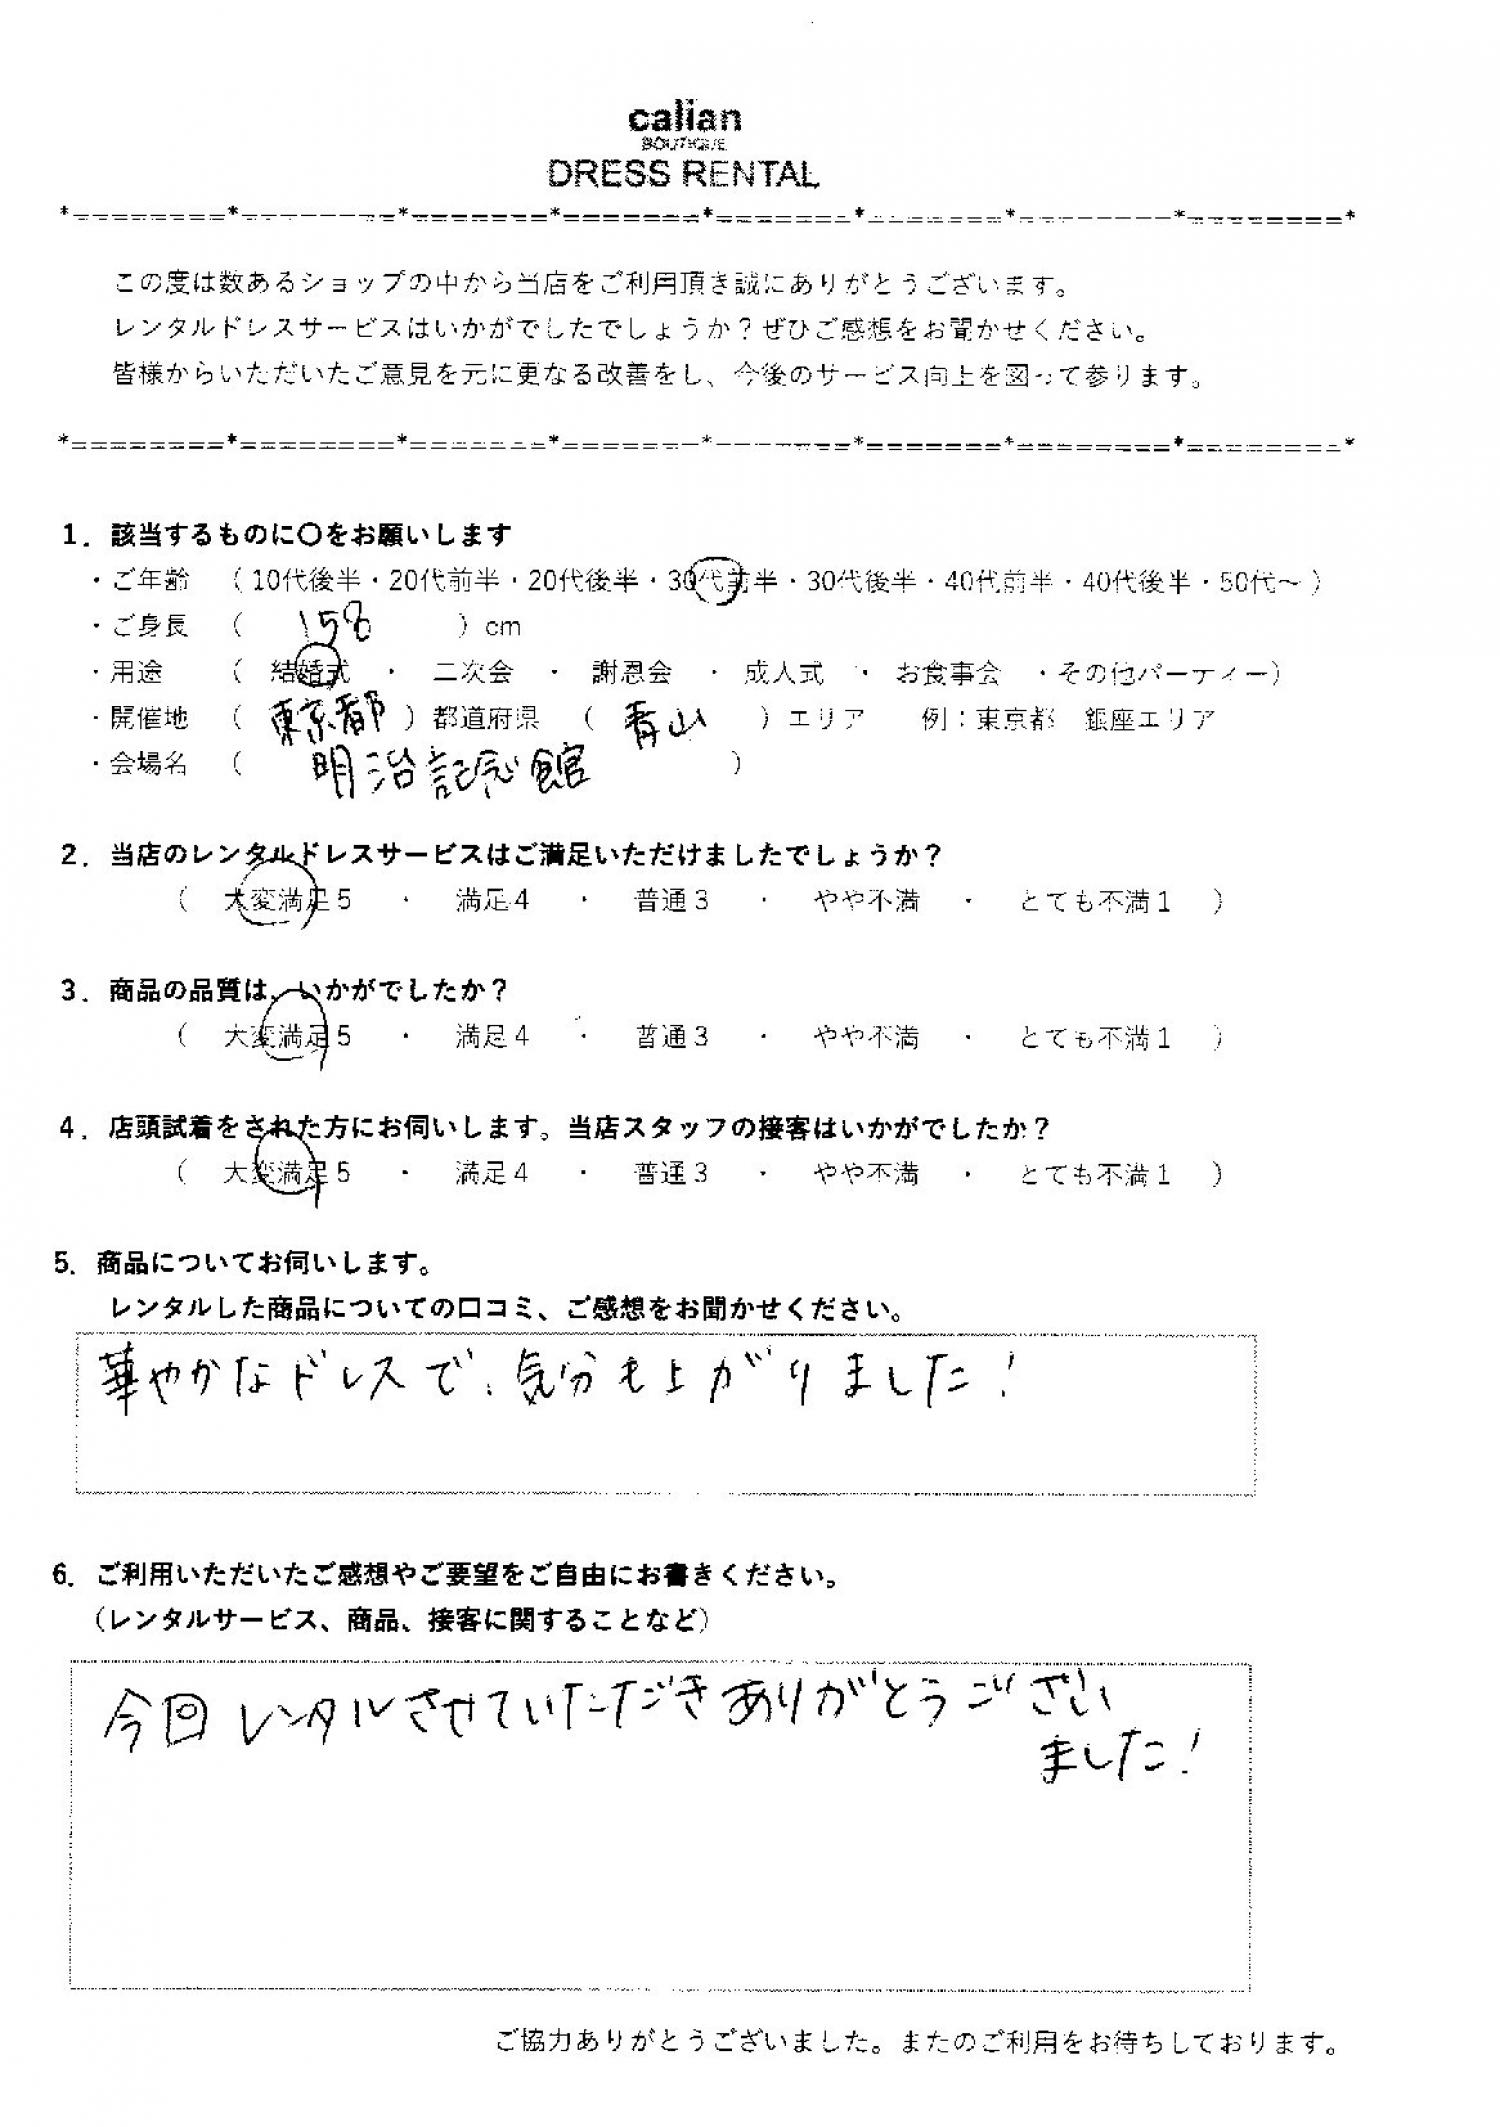 calian
BOUTIQUE
DRESS RENTAL
*========*========*=======*=======*=======*=======*========*========*
この度は数あるショップの中から当店をご利用頂き誠にありがとうございます。
レンタルドレスサービスはいかがでしたでしょうか？ぜひご感想をお聞かせください。
皆様からいただいたご意見を元に更なる改善をし、今後のサービス向上を図って参ります。
*========*========*=======*=======*=======*=======*========*========*
1．該当するものに〇をお願いします
・ご年齢 （ 10代後半・20代前半・20代後半・30代前半・30代後半・40代前半・40代後半・50代～ ）
・ご身長 （ 158 ）cm
・用途 （ 結婚式 ・ 二次会 ・ 謝恩会 ・ 成人式 ・ お食事会 ・その他パーティー）
・開催地 （ 東京都 ）都道府県 （ 青山 ）エリア 例：東京都 銀座エリア
・会場名 （ 明治記念館 ）
2．当店のレンタルドレスサービスはご満足いただけましたでしょうか？
（ 大変満足５ ・ 満足４ ・ 普通３ ・ やや不満 ・ とても不満１ ）
3．商品の品質は、いかがでしたか？
（ 大変満足５ ・ 満足４ ・ 普通３ ・ やや不満 ・ とても不満１ ）
4．店頭試着をされた方にお伺いします。当店スタッフの接客はいかがでしたか？
（ 大変満足５ ・ 満足４ ・ 普通３ ・ やや不満 ・ とても不満１ ）
5．商品についてお伺いします。
レンタルした商品についての口コミ、ご感想をお聞かせください。
華やかなドレスで、気分も上がりました！
6．ご利用いただいたご感想やご要望をご自由にお書きください。
（レンタルサービス、商品、接客に関することなど）
今回レンタルさせていただきありがとうござい
ました！
ご協力ありがとうございました。またのご利用をお待ちしております。